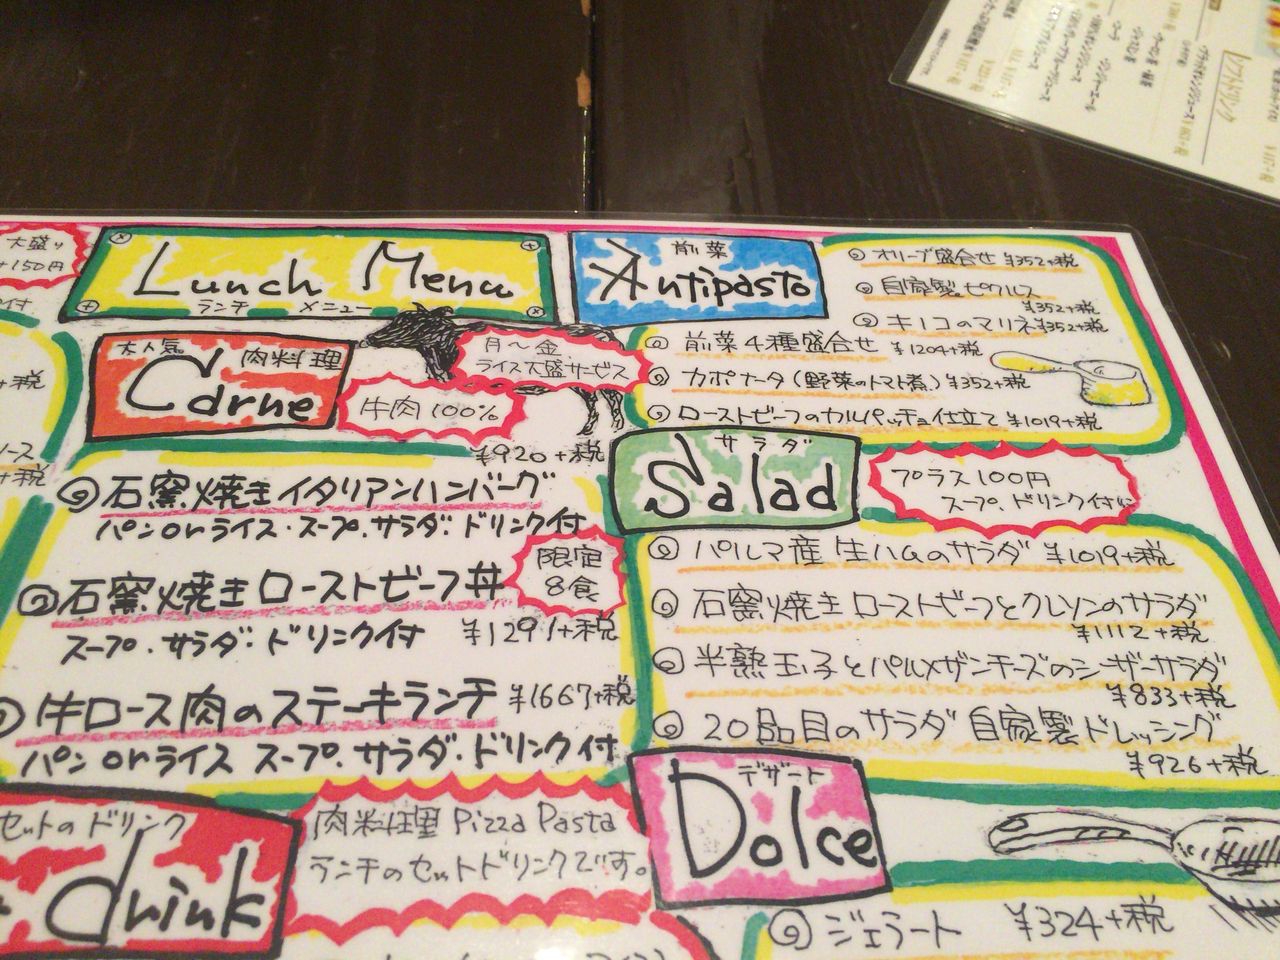 大盛り
+150円
Lunch Menu
ランチ メニュー
大人気 肉料理
Carne
月〜金
ライス大盛サービス
牛肉100%
¥920+税
石窯焼きイタリアンハンバーグ
パンorライス・スープ・サラダ・ドリンク付
限定
8食
石窯焼きローストビーフ丼
スープ・サラダ・ドリンク付 ¥1291+税
牛ロース肉のステーキランチ ¥1667+税
パンorライス スープ・サラダ・ドリンク付
セットのドリンク
drink
肉料理 Pizza Pasta
ランチのセットドリンクです。
前菜
Antipasto
オリーブ盛合せ ¥352+税
自家製ピクルス
¥352+税
キノコのマリネ ¥352+税
前菜4種盛合せ ¥1204+税
カポナータ(野菜のトマト煮) ¥352+税
ローストビーフのカルパッチョ仕立て ¥1019+税
サラダ
Salad
プラス100円
スープ、ドリンク付に
パルマ産生ハムのサラダ ¥1019+税
石窯焼きローストビーフとクレソンのサラダ
¥1112+税
半熟玉子とパルメザンチーズのシーザーサラダ
¥833+税
20品目のサラダ 自家製ドレッシング
¥926+税
デザート
Dolce
ジェラート ¥324+税
ソフトドリンク